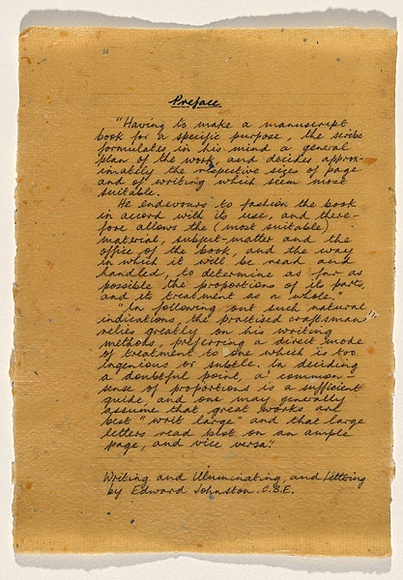 Preface
"Having to make a manuscript
book for a specific purpose, the scribe
formulates in his mind a general
plan of the work, and decides approx-
imately the respective sizes of page
and of writing which seem most
suitable.
He endevours to fashion the book
in accord with its use, and there-
fore allows the (most suitable)
material, subject-matter and the
office of the book, and the way
in which it will be read and
handled, to determine as far as
possible the proportions of its parts,
and its treatment as a whole."
"In following out such natural
indications, the practised craftsman
relies greatly on his writing
methods, preferring a direct mode
of treatment to one which is too
ingenious or subtle. In deciding
a doubtful point, a common-
sense of proportions is a sufficient
guide, and one may generally
assume that great works are
best "writ large" and that large
letters read best on an ample
page, and vice versa."
Writing and Illuminating, and Lettering
by Edward Johnston. C.B.E.